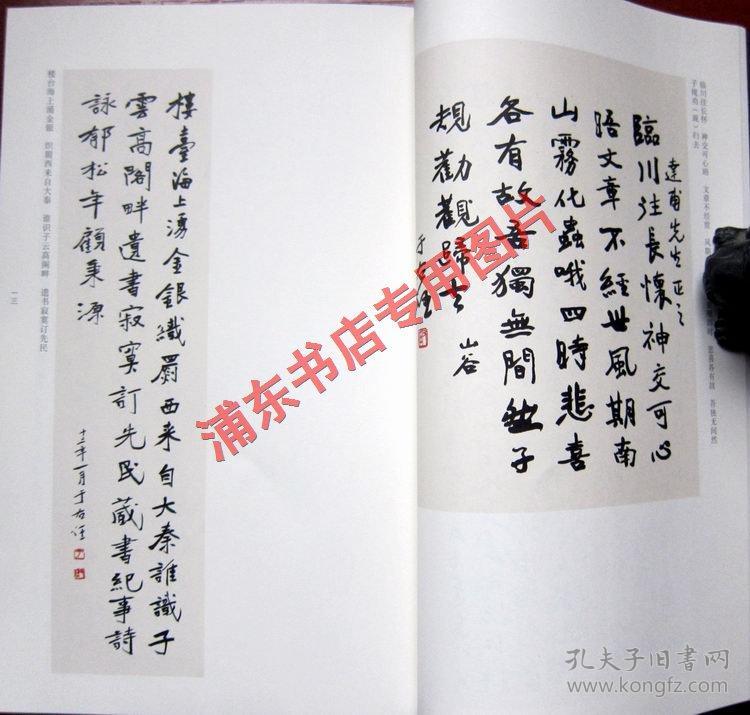 臨川往長懷神交可心
晤文章不經世風期南
山霧化蟲哦四時悲喜
各有故吾獨無間然子
規勸觀歸去 山谷
達甫先生正之
于右任
樓臺海上湧金銀織罽西來自大秦誰識子
雲高閣畔遺書寂寞訂先民藏書紀事詩
詠郁松年顧秉源
十三年一月于右任
临川往长怀 神交可心晤 文章不经世 风期
悲喜各有故 吾独无间然
楼台海上涌金银 织罽西来自大秦 谁识子云高阁畔 遗书寂寞订先民
一三
浦东书店专用图片
孔夫子旧书网
www.kongfz.com